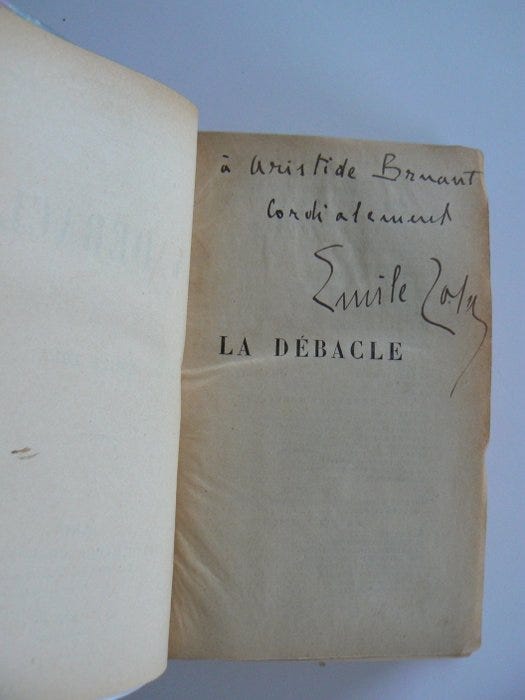 à Aristide Bruant
Cordialement
Emile Zola
LA DÉBACLE